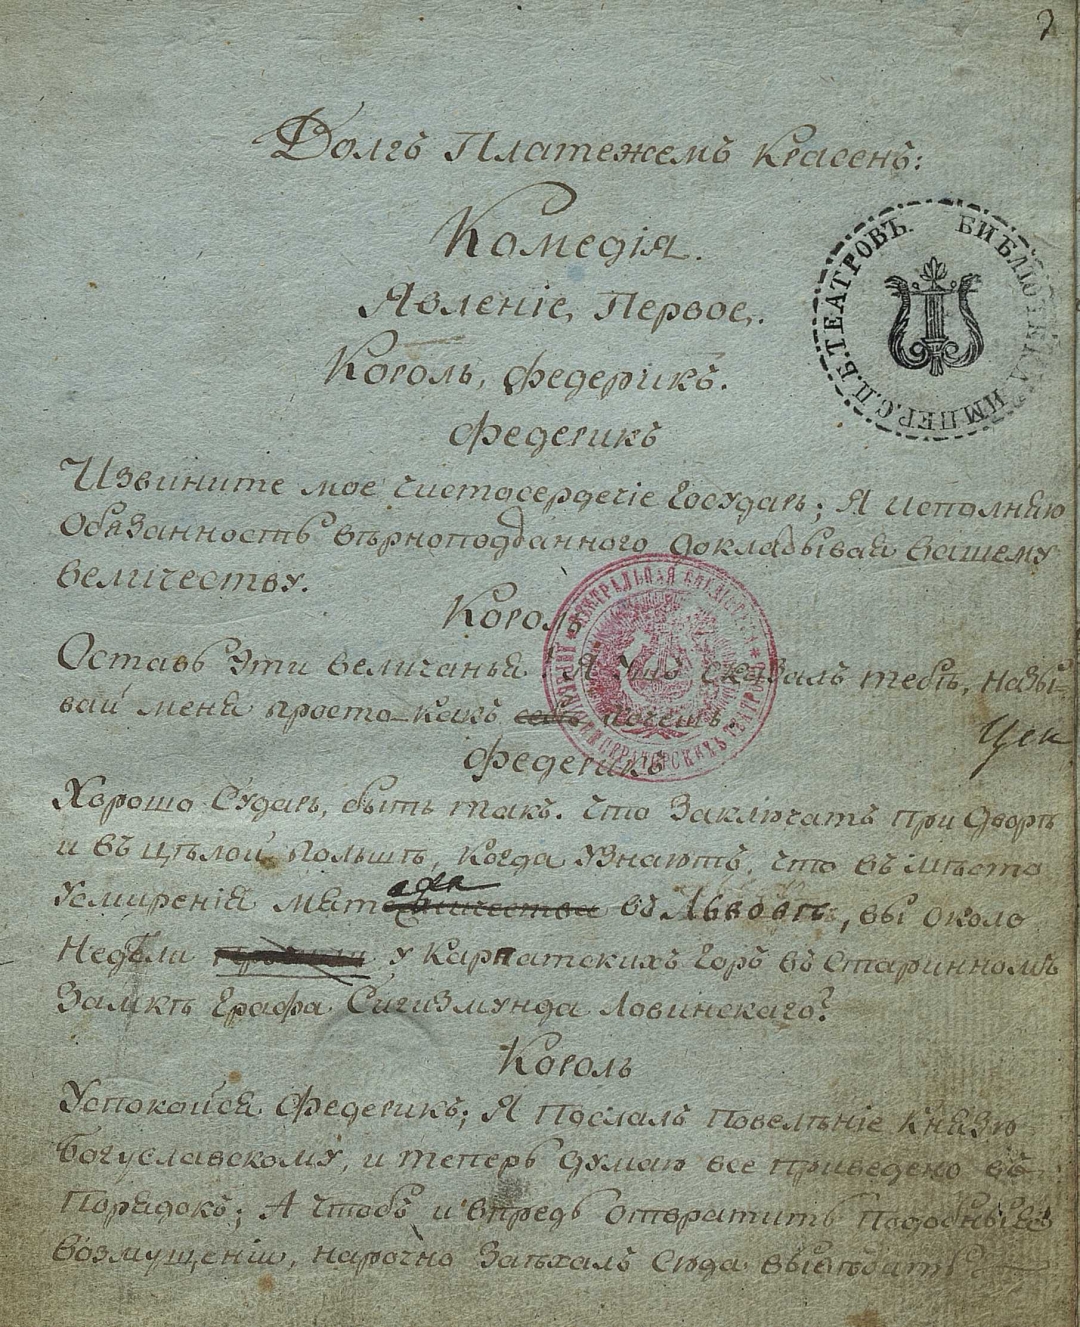 2
Долгъ Платежемъ Красенъ:
Комедія.
Явленіе, Первое,.
БИБЛІОТЕКА ИМПЕР. С.П.Б. ТЕАТРОВЪ.
Король, Федерикъ.
Федерикъ
Извините мое чистосердечіе Государь; Я исполняю
Обязанность вѣрноподданного докладывая вашему
величеству.
Король
Оставь эти величанья! Я ужъ сказалъ тебѣ, назы=
вай меня просто какъ хочешь.
ЦЕНТРАЛЬНАЯ БИБЛІОТЕКА ИМПЕРАТОРСКИХЪ ТЕАТРОВЪ
Федерикъ
Хорошо Сударь, быть такъ. Что Заключатъ при Дворѣ
и въ цѣлой Польшѣ, когда узнаютъ, что въ мѣсто
Усмиренія мят въ Львовѣ, вы около
Недѣли у Карпатскихъ Горъ въ Старинномъ
Замкѣ Графа Сигизмунда Ловинскаго?
Король
Успокойся Федерикъ; Я Послалъ повелѣніе Князю
Богуславскому, и теперь думаю все приведено въ
Порядокъ; А чтобъ и впредь отвратить подобныя
возмущеніи, нарочно Заѣхалъ Сюда